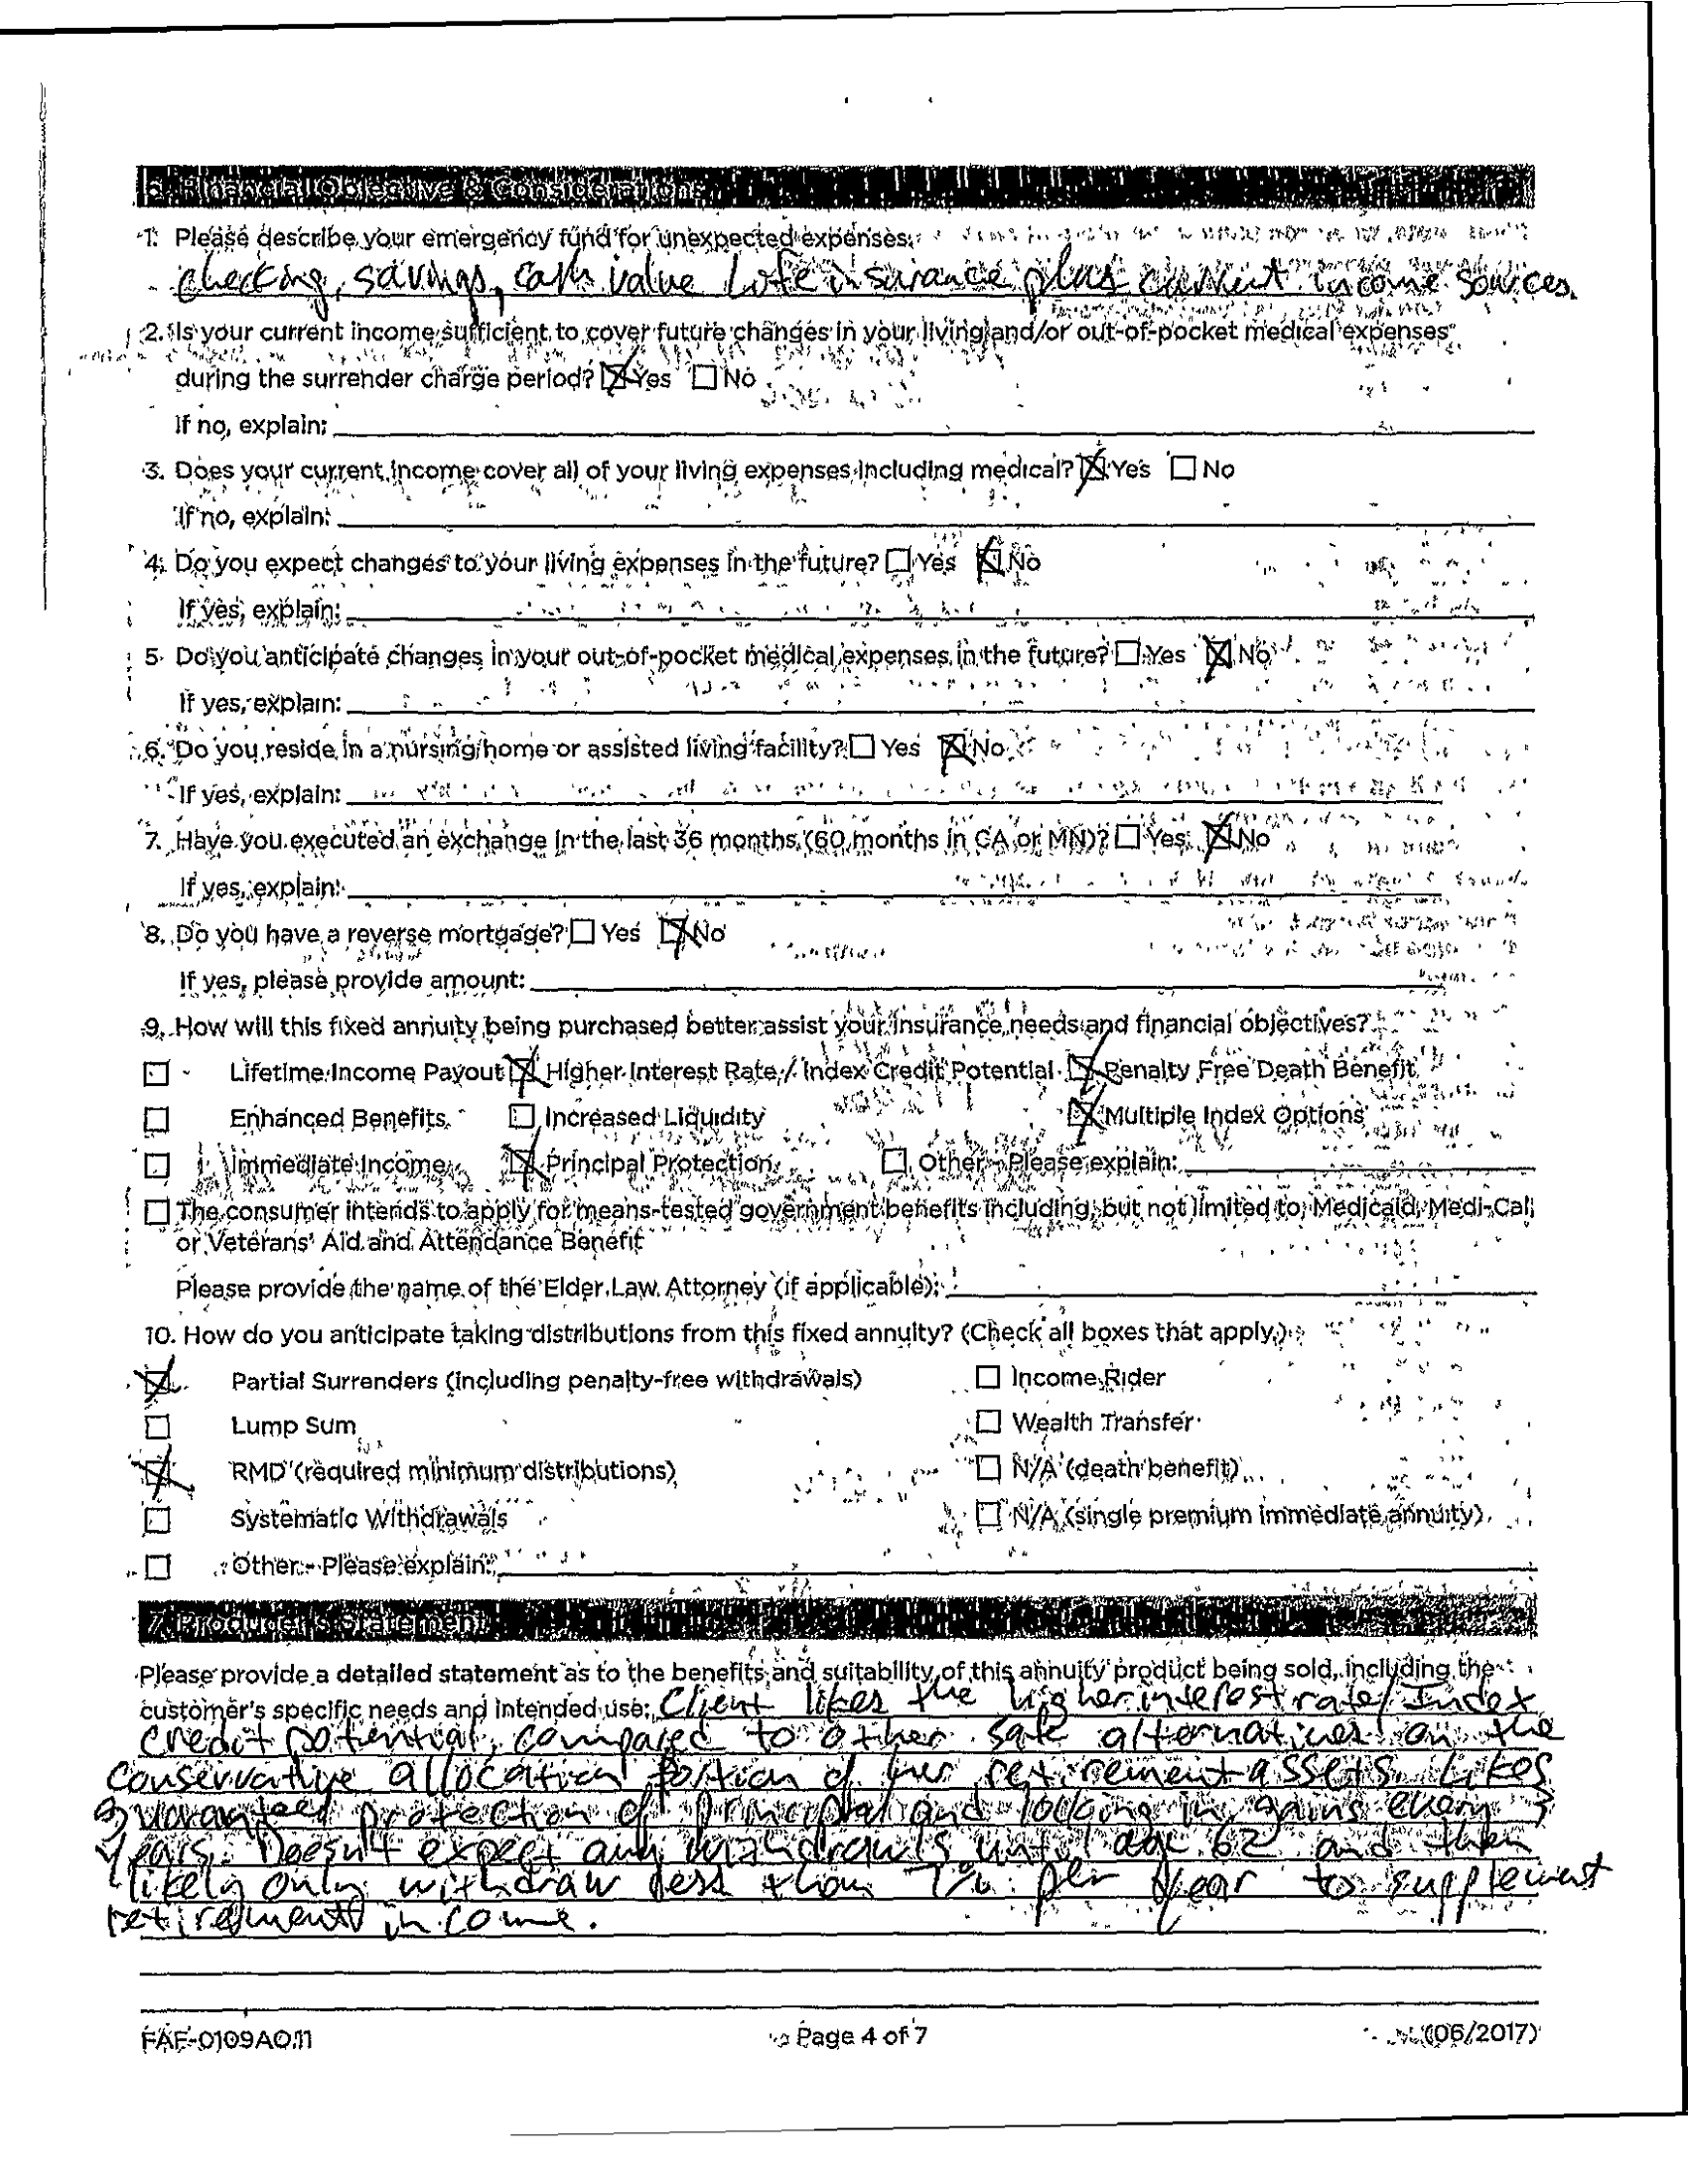 6. Financial Objective & Considerations
1. Please describe your emergency fund for unexpected expenses:
checking, savings, cash value Life insurance plus current income sources.
2. Is your current income sufficient to cover future changes in your living and/or out-of-pocket medical expenses
during the surrender charge period? ☒ Yes ☐ No
If no, explain:
3. Does your current income cover all of your living expenses including medical? ☒ Yes ☐ No
If no, explain:
4. Do you expect changes to your living expenses in the future? ☐ Yes ☒ No
If yes, explain:
5. Do you anticipate changes in your out-of-pocket medical expenses in the future? ☐ Yes ☒ No
If yes, explain:
6. Do you reside in a nursing home or assisted living facility? ☐ Yes ☒ No
If yes, explain:
7. Have you executed an exchange in the last 36 months (60 months in CA or MN)? ☐ Yes ☒ No
If yes, explain:
8. Do you have a reverse mortgage? ☐ Yes ☒ No
If yes, please provide amount:
9. How will this fixed annuity being purchased better assist your insurance needs and financial objectives?
☐ Lifetime Income Payout ☒ Higher Interest Rate / Index Credit Potential ☒ Penalty Free Death Benefit
☐ Enhanced Benefits ☐ Increased Liquidity ☒ Multiple Index Options
☐ Immediate Income ☒ Principal Protection ☐ Other - Please explain:
☐ The consumer intends to apply for means-tested government benefits including, but not limited to, Medicaid, Medi-Cal,
or Veterans' Aid and Attendance Benefit
Please provide the name of the Elder Law Attorney (if applicable):
10. How do you anticipate taking distributions from this fixed annuity? (Check all boxes that apply.)
☒ Partial Surrenders (including penalty-free withdrawals) ☐ Income Rider
☐ Lump Sum ☐ Wealth Transfer
☒ RMD (required minimum distributions) ☐ N/A (death benefit)
☐ Systematic Withdrawals ☐ N/A (single premium immediate annuity)
☐ Other - Please explain:
7. Producer's Statement
Please provide a detailed statement as to the benefits and suitability of this annuity product being sold, including the
customer's specific needs and intended use: Client likes the higher interest rate/Index
credit potential, compared to other safe alternatives on the
conservative allocation portion of her retirement assets. Likes
guaranteed protection of principal and locking in gains every 3
years. Doesn't expect any withdrawls until age 62 and then
likely only withdraw less than 7% per year to supplement
retirement income.
FAF-0109AO.11 Page 4 of 7 (06/2017)